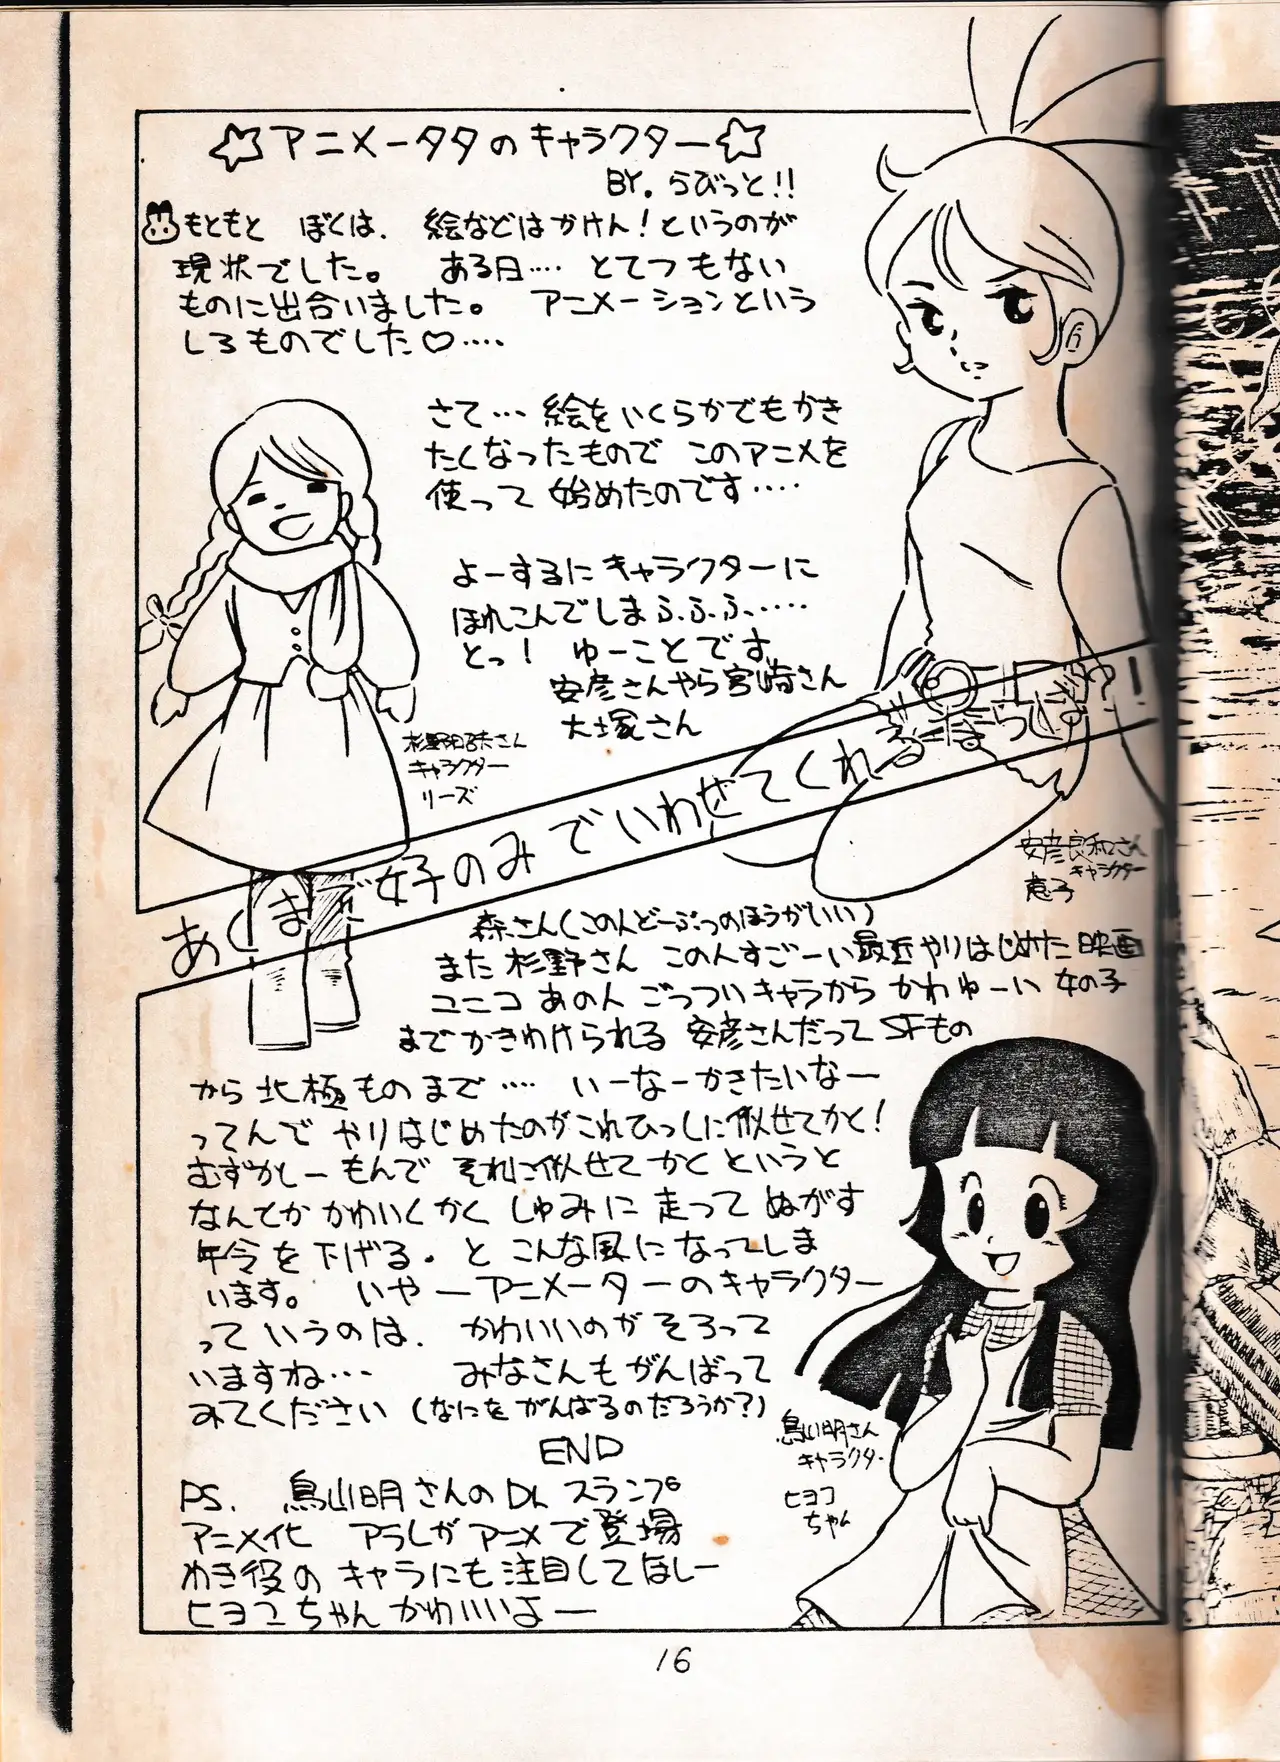 ☆アニメータタのキャラクター☆
BY. らびっと!!
もともと ぼくは、絵などはかけん!というのが
現状でした。 ある日‥‥ とてつもない
ものに出合いました。 アニメーションという
しろものでした♡‥‥
さて‥‥ 絵をいくらかでもかき
たくなったもので このアニメを
使って 始めたのです‥‥
よーするにキャラクターに
ほれこんでしまふふふ、‥‥
とっ! ゆーことです。
安彦さんやら宮崎さん
大塚さん
杉野昭夫さん
キャラクター
リーズ
あくまで好のみでいわせてくれる
安彦良和さん
キャラクター
恵子
森さん(この人どーぶつのほうがいい)
また 杉野さん この人すごーい最近やりはじめた映画
ユニコ あの人 ごっついキャラから かわゆーい 女の子
までかきわけられる 安彦さんだって SFもの
から 北極ものまで‥‥ いーなーかきたいなー
ってんで やりはじめたのがこれひっしに似せてかと!
むずかしーもんで それに似せて かくというと
なんてか かわいくかく しゅみに 走って ぬがす
年令を下げる。と こんな風になってしま
います。 いやーアニメーターのキャラクター
っていうのは、かわいいのが そろって
いますね‥‥ みなさんもがんばって
みてください (なにをがんばるのだろうか?)
END
PS. 鳥山明さんのDr. スランプ
アニメ化 アラレがアニメで登場
わき役の キャラにも注目してほしー
ヒヨコちゃん かわいいよー
鳥山明さん
キャラクター
ヒヨコ
ちゃん
16